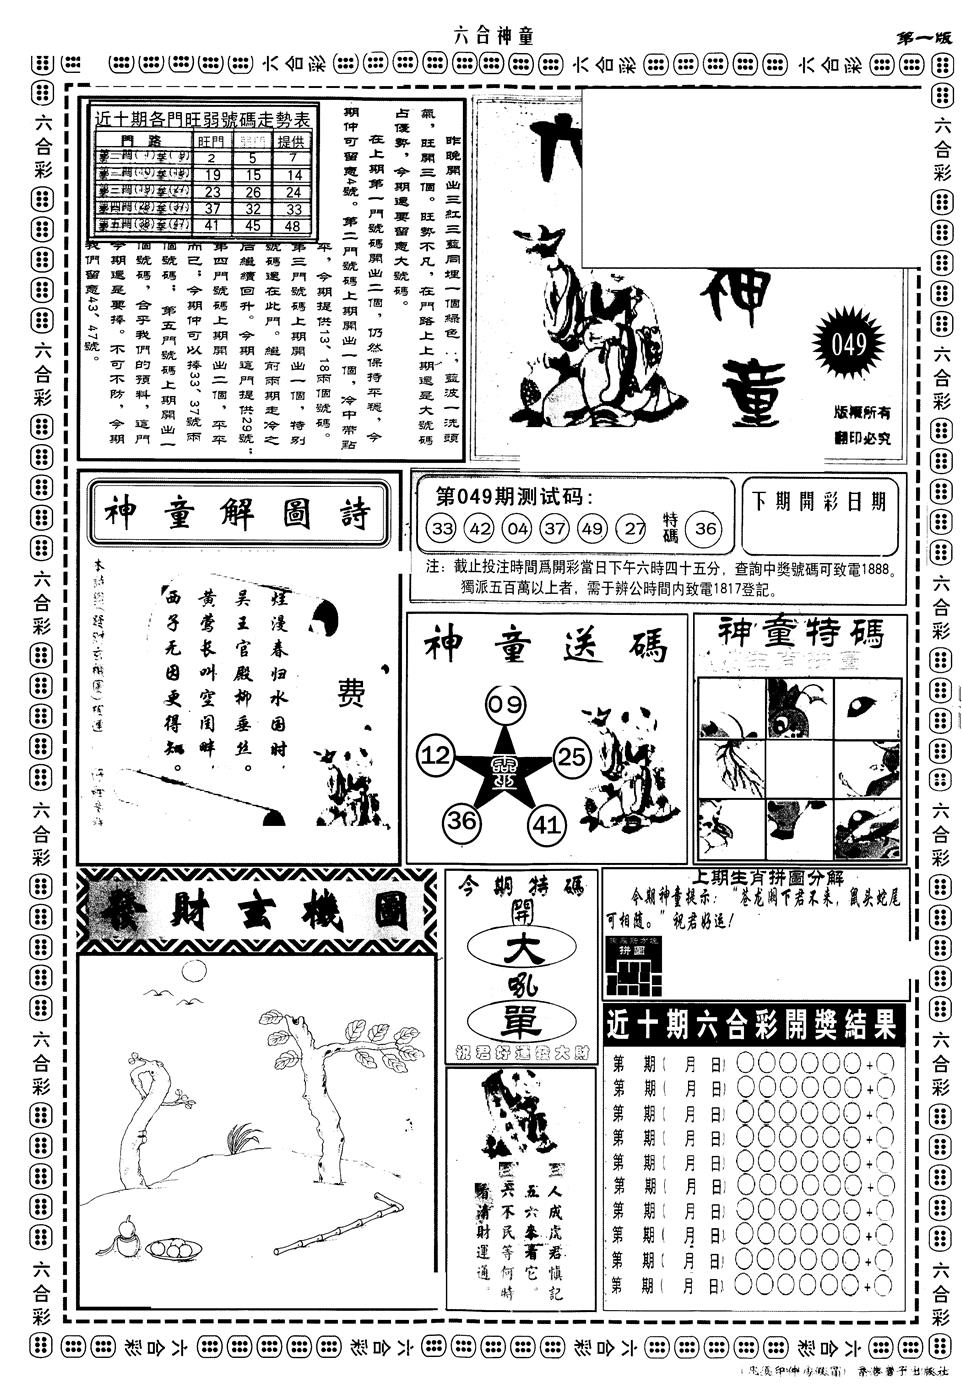 六合神童
第一版
近十期各門旺弱號碼走勢表
門 路 旺門 提供
2 5 7
19 15 14
23 26 24
第四門(28)至(37) 37 32 33
第五門(38)至(47) 41 45 48
昨晚開出三紅三藍同埋一個綠色,藍波一洗頭
氣,旺開三個。旺勢不凡,在門路上上期還是大號碼
占優勢,今期還要留意大號碼。
在上期第一門號碼開出二個,仍然保持平穩,今
期仲可留意4號。第二門號碼上期開出一個,冷中帶點
旺,今期提供13,18兩個號碼。
第三門號碼上期開出一個,特別
號碼還在此門。繼前兩期走冷之
后繼續回升。今期這門提供29號;
第四門號碼上期開出二個,平平
而已;今期仲可以捧33,37號兩
個號碼;第五門號碼上期開出一
個號碼,合乎我們的預料,這門
今期還是要捧。不可不防,今期
我們留意43,47號。
神
童
049
版權所有
翻印必究
神童解圖詩
爛漫春归水国时,
吴王宫殿柳垂丝。
黄莺长叫空闺畔,
西子无因更得知。
费
第049期测试码:
33 42 04 37 49 27 特碼 36
下期開彩日期
注:截止投注時間爲開彩當日下午六時四十五分,查詢中獎號碼可致電1888。
獨派五百萬以上者,需于辨公時間内致電1817登記。
神童送碼
09
12 靈 25
36 41
神童特碼
生肖拼圖
發財玄機圖
今期特碼
開
大
吼
單
祝君好運發大財
上期生肖拼圖分解
今期神童提示:“苍龙阙下君不来,鼠头蛇尾
可相随。”祝君好运!
拼圖
人成虎君慎記
五六來看它。
六不民等何時
看清財運通。
近十期六合彩開獎結果
第 期( 月 日) +
第 期( 月 日) +
第 期( 月 日) +
第 期( 月 日) +
第 期( 月 日) +
第 期( 月 日) +
第 期( 月 日) +
第 期( 月 日) +
第 期( 月 日) +
第 期( 月 日) +
六合彩